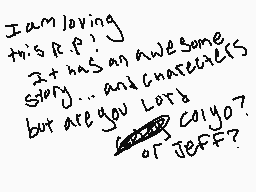 I am loving
this R.P!
It has an awesome
story... and charecters
but are you Lord
colyo?
or Jeff?